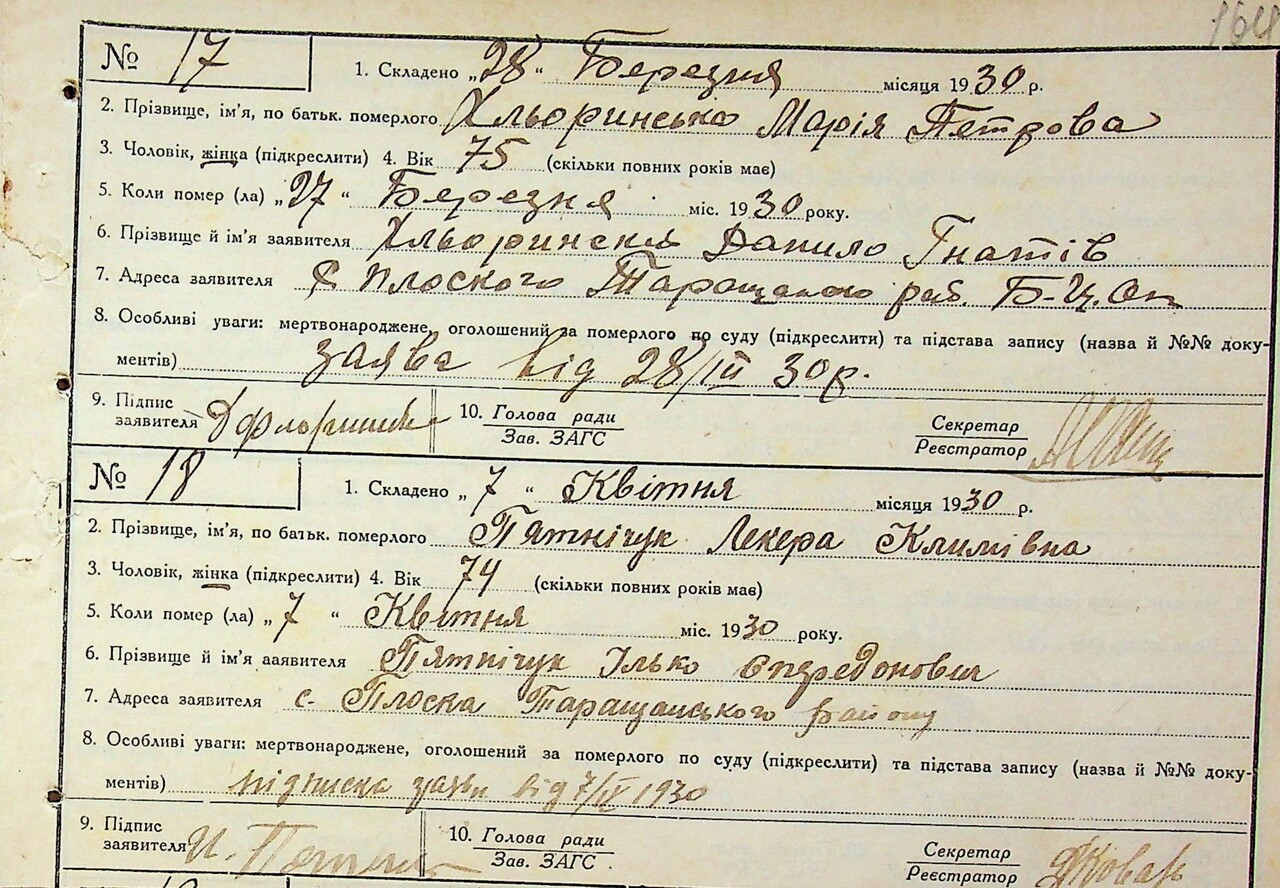 164
№ 17
1. Складено „28“ Березня місяця 1930 р.
2. Прізвище, ім'я, по батьк. померлого Хльоринсько Марія Петрова
3. Чоловік, жінка (підкреслити) 4. Вік 75 (скільки повних років має)
5. Коли помер (ла) „27“ Березня міс. 1930 року.
6. Прізвище й ім'я заявителя Данило Гнатів
7. Адреса заявителя с. Плоского Таращаного рай. Б-Ц. Ок
8. Особливі уваги: мертвонароджене, оголошений за померлого по суду (підкреслити) та підстава запису (назва й №№ доку-
ментів) заява від 28/III 30 р.
9. Підпис
заявителя
10. Голова ради
Зав. ЗАГС
Секретар
Реєстратор
№ 18
1. Складено „7“ Квітня місяця 1930 р.
2. Прізвище, ім'я, по батьк. померлого Пятнічук Лекера Климівна
3. Чоловік, жінка (підкреслити) 4. Вік 74 (скільки повних років має)
5. Коли помер (ла) „7“ Квітня міс. 1930 року.
6. Прізвище й ім'я заявителя Пятнічук Ілько Спередонович
7. Адреса заявителя с. Плоска Таращанського району
8. Особливі уваги: мертвонароджене, оголошений за померлого по суду (підкреслити) та підстава запису (назва й №№ доку-
ментів) підписка заяви від 7/IV 1930
9. Підпис
заявителя И.
10. Голова ради
Зав. ЗАГС
Секретар
Реєстратор